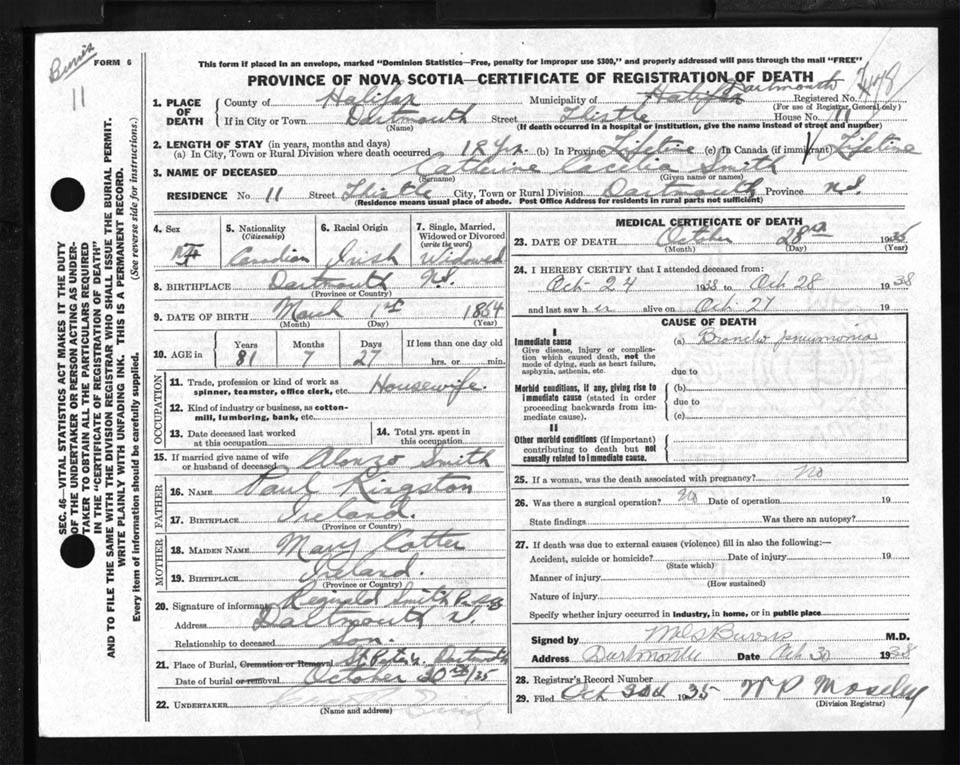 Burns
11
FORM 6
This form if placed in an envelope, marked "Dominion Statistics—Free, penalty for improper use $300," and properly addressed will pass through the mail "FREE"
PROVINCE OF NOVA SCOTIA—CERTIFICATE OF REGISTRATION OF DEATH
1. PLACE OF DEATH
County of Halifax Municipality of Halifax Dartmouth Registered No.
(For use of Registrar General only)
If in City or Town Dartmouth Street Thistle House No. 11
(Name) (If death occurred in a hospital or institution, give the name instead of street and number)
2. LENGTH OF STAY (in years, months and days)
(a) In City, Town or Rural Division where death occurred 12 yrs. (b) In Province Lifetime (c) In Canada (if immigrant) Lifetime
3. NAME OF DECEASED Catherine Cacelia Smith
(Surname) (Given name or names)
RESIDENCE No 11 Street Thistle City, Town or Rural Division Dartmouth Province N.S.
(Residence means usual place of abode. Post Office Address for residents in rural parts not sufficient)
4. Sex F
5. Nationality (Citizenship) Canadian
6. Racial Origin Irish
7. Single, Married, Widowed or Divorced (write the word) Widowed
8. BIRTHPLACE Dartmouth N.S.
(Province or Country)
9. DATE OF BIRTH March 1st 1854
(Month) (Day) (Year)
10. AGE in Years 81 Months 7 Days 27 If less than one day old
hrs. or min.
OCCUPATION
11. Trade, profession or kind of work as spinner, teamster, office clerk, etc. Housewife.
12. Kind of industry or business, as cotton-mill, lumbering, bank, etc.
13. Date deceased last worked at this occupation
14. Total yrs. spent in this occupation
15. If married give name of wife or husband of deceased Alonzo Smith
FATHER
16. NAME Paul Kingston
17. BIRTHPLACE Ireland.
(Province or Country)
MOTHER
18. MAIDEN NAME Mary Cotter
19. BIRTHPLACE Ireland.
(Province or Country)
20. Signature of informant Reginald Smith
Address Dartmouth N.
Relationship to deceased Son.
21. Place of Burial, Cremation or Removal St Peters, Dartmouth
Date of burial or removal October 30th/35
22. UNDERTAKER
(Name and address)
MEDICAL CERTIFICATE OF DEATH
23. DATE OF DEATH October 28th 1935
(Month) (Day) (Year)
24. I HEREBY CERTIFY that I attended deceased from:
Oct- 24 1938 to Oct 28 1938
and last saw h er alive on Oct 27 19
CAUSE OF DEATH
I
Immediate cause
Give disease, injury or complication which caused death, not the mode of dying, such as heart failure, asphyxia, asthenia, etc.
(a) Broncho pneumonia
due to
Morbid conditions, if any, giving rise to immediate cause (stated in order proceeding backwards from immediate cause).
(b)
due to
(c)
II
Other morbid conditions (if important) contributing to death but not causally related to immediate cause.
25. If a woman, was the death associated with pregnancy? No
26. Was there a surgical operation? No Date of operation 19
State findings Was there an autopsy?
27. If death was due to external causes (violence) fill in also the following:—
Accident, suicide or homicide? Date of injury 19
(State which)
Manner of injury
(How sustained)
Nature of injury
Specify whether injury occurred in industry, in home, or in public place
Signed by Burris M.D.
Address Dartmouth Date Oct 30 1938
28. Registrar's Record Number
29. Filed Oct 1935 W P Moseley
(Division Registrar)
SEC. 46—VITAL STATISTICS ACT MAKES IT THE DUTY
OF THE UNDERTAKER OR PERSON ACTING AS UNDER-
TAKER TO OBTAIN ALL THE PARTICULARS REQUIRED
IN THE "CERTIFICATE OF REGISTRATION OF DEATH"
AND TO FILE THE SAME WITH THE DIVISION REGISTRAR WHO SHALL ISSUE THE BURIAL PERMIT.
WRITE PLAINLY WITH UNFADING INK. THIS IS A PERMANENT RECORD.
Every item of information should be carefully supplied. (See reverse side for instructions.)